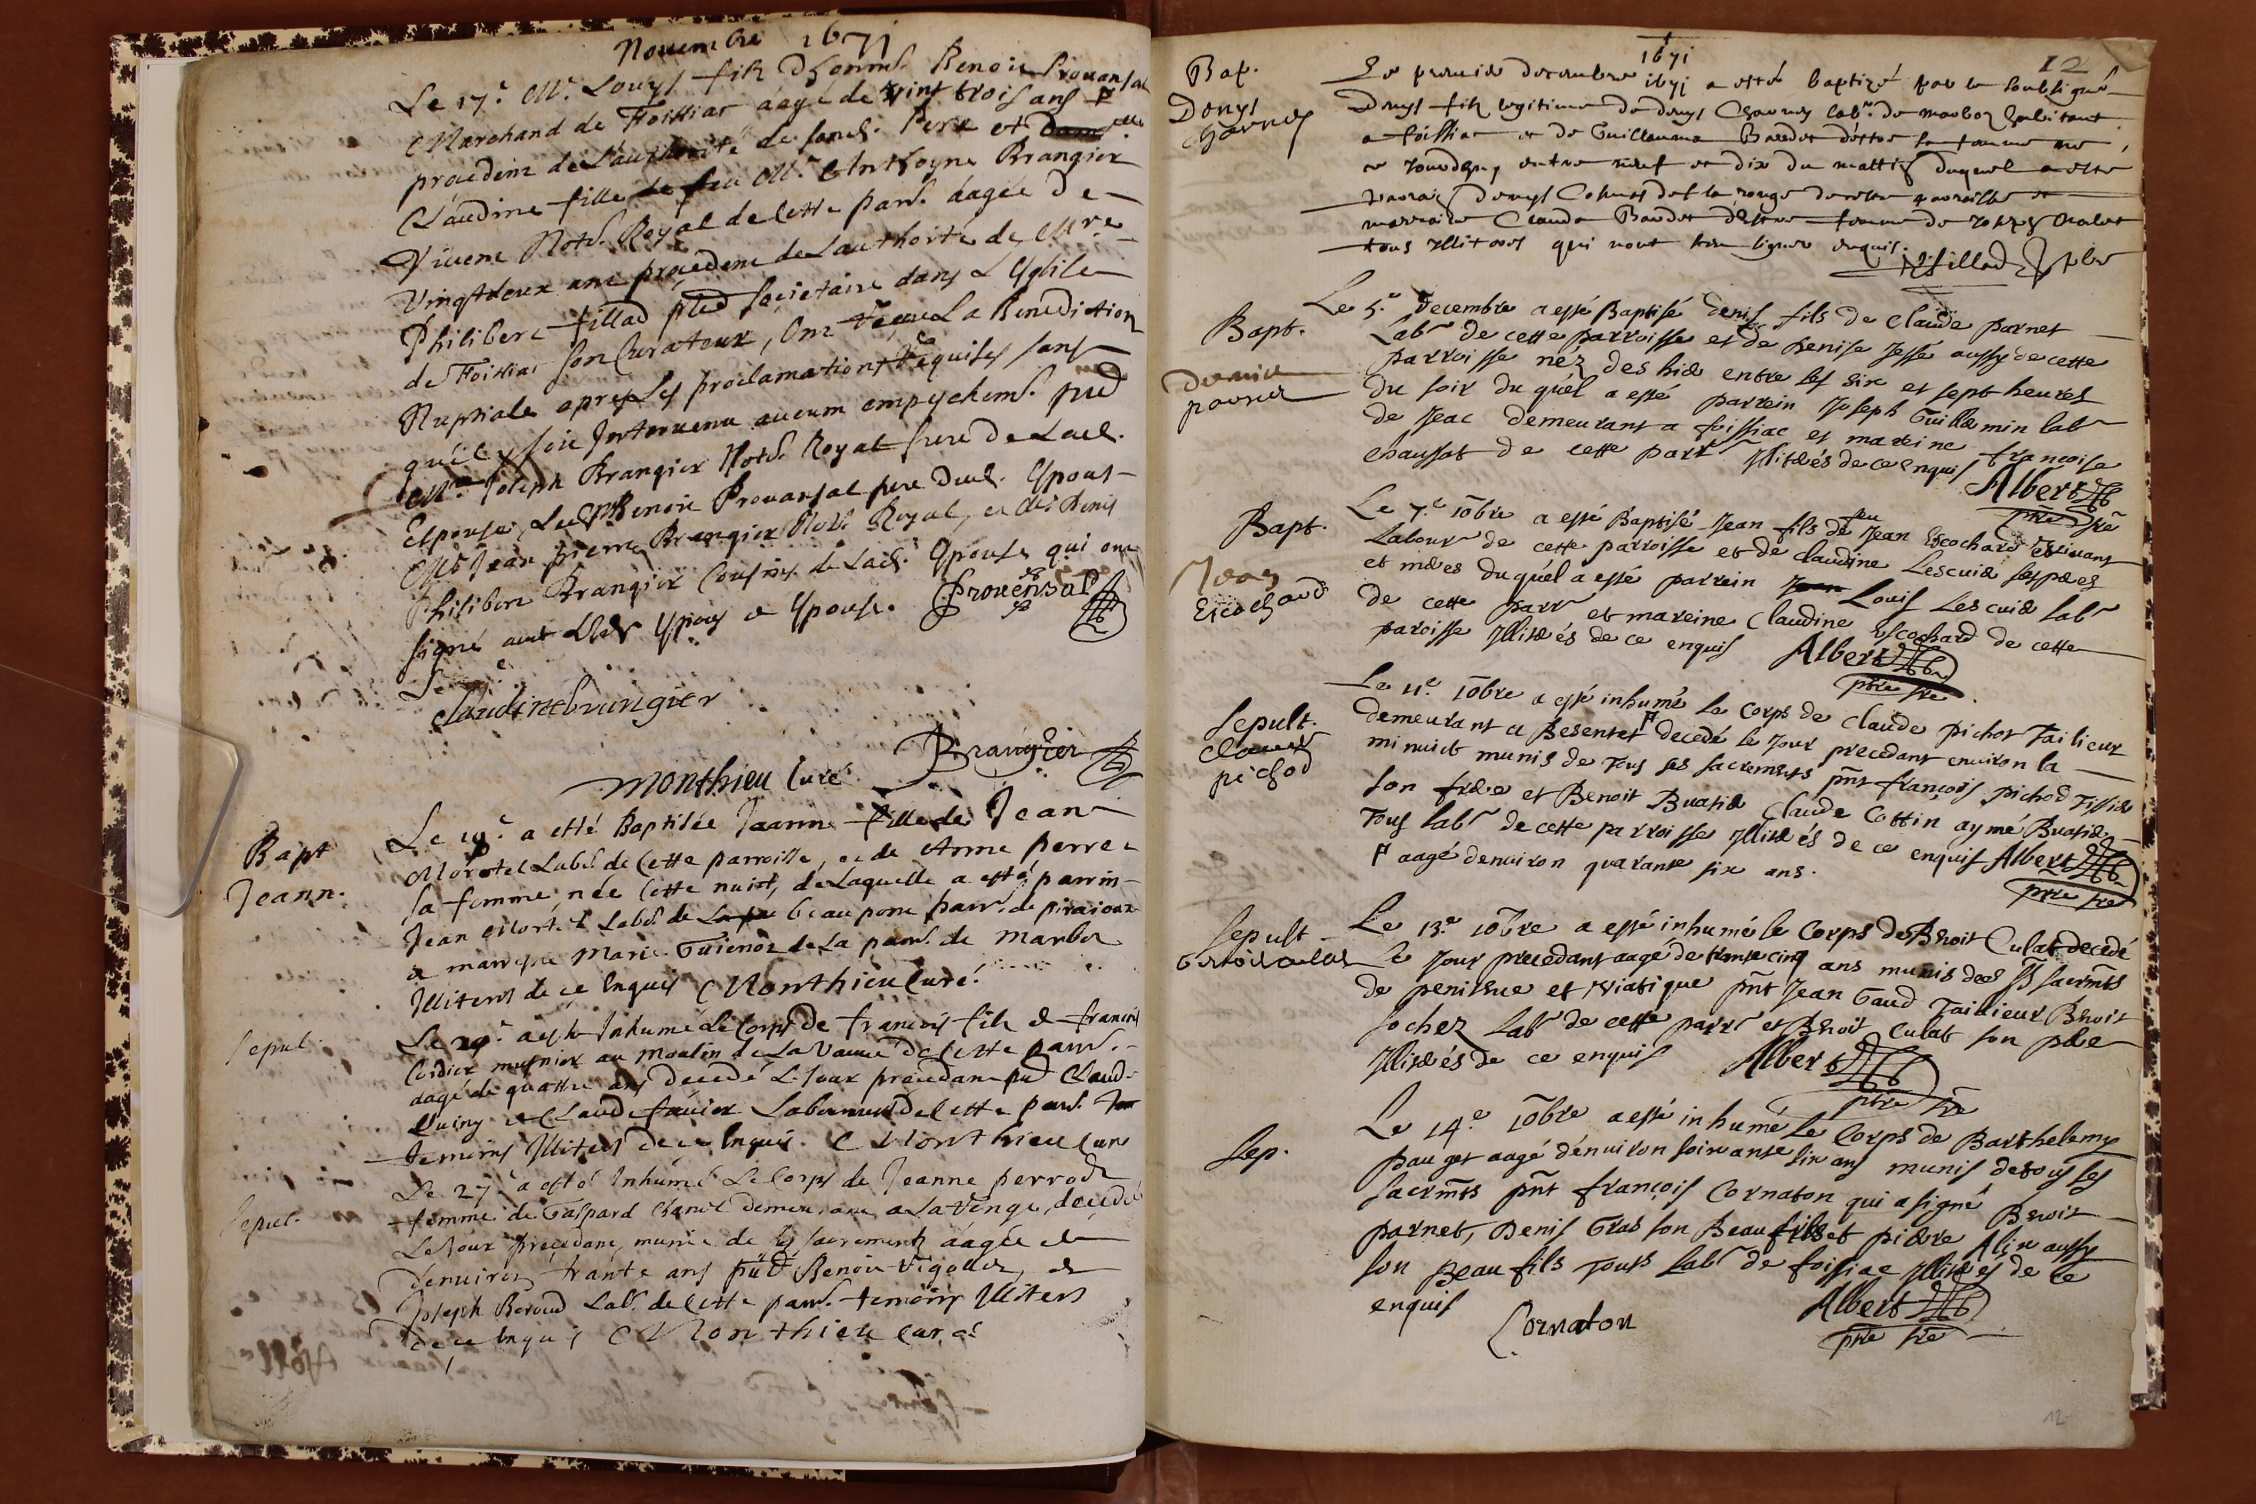 Novembre 1671
Le 17.e Mr. Louys fils d'honnt. Benoit Provansal
Marchand de Foissiat aagé de vint trois ans
procedent de l'authorité de sond. Pere et
Claudine fille de feu Mr. Anthoyne Brangier
Vivent Notre. Royal de Cette parr. aagée de
Vingtdeux ans procedent de Lauthorité de
Philibert fillod pbre Societaire dans L'Esglise
de Foissiat son Curateur, Ont receu La Benediction
Nuptiale apres Les proclamations requises sans
qu'il y soit Intervenu aucum empechemt. pnt
Mre. Joseph Brangier Notre. Royal frere de Lad.
Espouse, Led Benoit Provansal pere dud. Espoux
Mre Jean pierre Brangier Notre Royal, et Denis
Philibert Brangier Cousins de Lad. Espouse qui ont
signé avec Espoux et Espouse. Provensal
Claudine brangier
Brangier
Monthieu Curé
Bapt
Jeann.
Le 19.e a esté Baptisée Jeanne fille de Jean
Morotel Labr. de Cette parroisse, et de Anne perret
sa femme, née Cette nuict, de Laquelle a esté parrin
Jean Morotel Labr. de beaupont parr. de
et marrine Marie Guienot de La parr. de Marboz
Illiterés de ce Enquis Monthieu Curé
Sepul.
Le a esté Inhumé Le Corps de francois fils de francois
Cordier musnier au Moulin de La Vavre de Cette parr.
aagé de quattre ans decedé Le Jour precedant pnt Claud.
et Claude favier Laboureurs de Cette parr.
temoins Illiterés de ce Enquis. Monthieu Curé
Sepul.
Le 27.e a esté Inhumé Le Corps de Jeanne perrod
femme de Gaspard Chanel demeurant a La Venge, decedé
Le Jour precedant, munie de ses sacrements aagée
denviron trante ans pnt Benoit Vigoux, et
Joseph Beroud Labr. de Cette parr. temoins Illiterés
de ce Enquis Monthieu Curé
1671
12
Bap.
Denys
Charney
Le premier decembre 1671 a esté baptizé par le soubsigné
Denys fils legitime de denys Charney labr. de marboz habitant
a foissiat et de Guillauma Baudet dettre sa femme né
ce Jourdhuy entre neuf et dix du mattin duquel a esté
parrain Denys de cette parroisse et
marraine Claude Baudet dettre femme de
tous illiterés qui nont sceu signer enquis.
Fillod pbre
Bapt.
denise
parnet
Le 5.e Decembre a esté Baptisé Denis fils de Claude parnet
Labr de cette parroisse et de Denise Jesse aussy de cette
parroisse néz des hier entre les six et sept heures
du soir du quél a esté parrein Joseph Guillemin labr
de Jeac demeurant a foissiac et mareine françoise
chaussat de cette parr Illiterés de ce enquis Albert
pbre vre
Bapt.
Jean
Escochard
Le 7.e 10bre a esté Baptisé Jean fils de feu Jean Escochard vivant
Labour de cette parroisse et de Claudine Lescuier ses peres
et meres duquél a esté parrein Louis Lescuier labr
de cette parr et mareine Claudine Escochard de cette
paroisse Illiterés de ce enquis Albert
pbre vre
Sepult.
Claude
pichod
Le 11.e 10bre a esté inhumé Le Corps de Claude pichot Taillieur
demeurant a Besentet decedé le Jour precedant environ la
minuict munis de Tous ses sacremts pnt françois pichod Tissier
son frere et Benoit Buatier Claude Cottin aymé Buatier
Tous labr de cette parroisse Illiterés de ce enquis Albert
aagé denviron quarante six ans.
pbre vre
Sepult
benoit culat
Le 13.e 10bre a esté inhumé le Corps de Benoit Culat decedé
le Jour precedant aagé de trente cinq ans munis des Sts sacremts
de penitence et viatique pnt Jean Gaud Taillieur Benoit
Sochez Labr de cette parr et Benoit Culat son pere
Illiterés de ce enquis Albert
pbre vre
Sep.
Le 14.e 10bre a esté inhumé Le Corps de Barthelemy
pauget aagé dénviron soixante six ans munis de tous ses
sacrmts pnt françois Cornaton qui a signé Benoit
parnet, Denis Gras son Beau fils et pierre Alix aussy
son Beau fils Tous Labr de foissiac Illiterés de ce
enquis
Cornaton
Albert
pbre vre
12